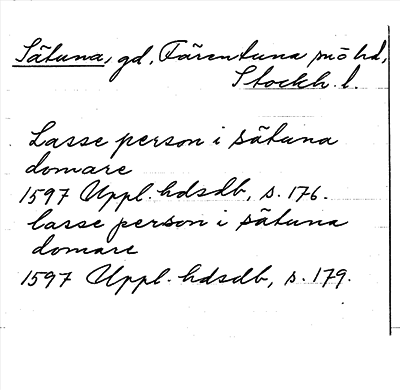 Sätuna, gd, Färentuna sn o hd,
Stockh. l.
Lasse person i sätuna
domare
1597 Uppl. hdsdb, s. 176.
lasse person i sätuna
domare
1597 Uppl. hdsdb, s. 179.